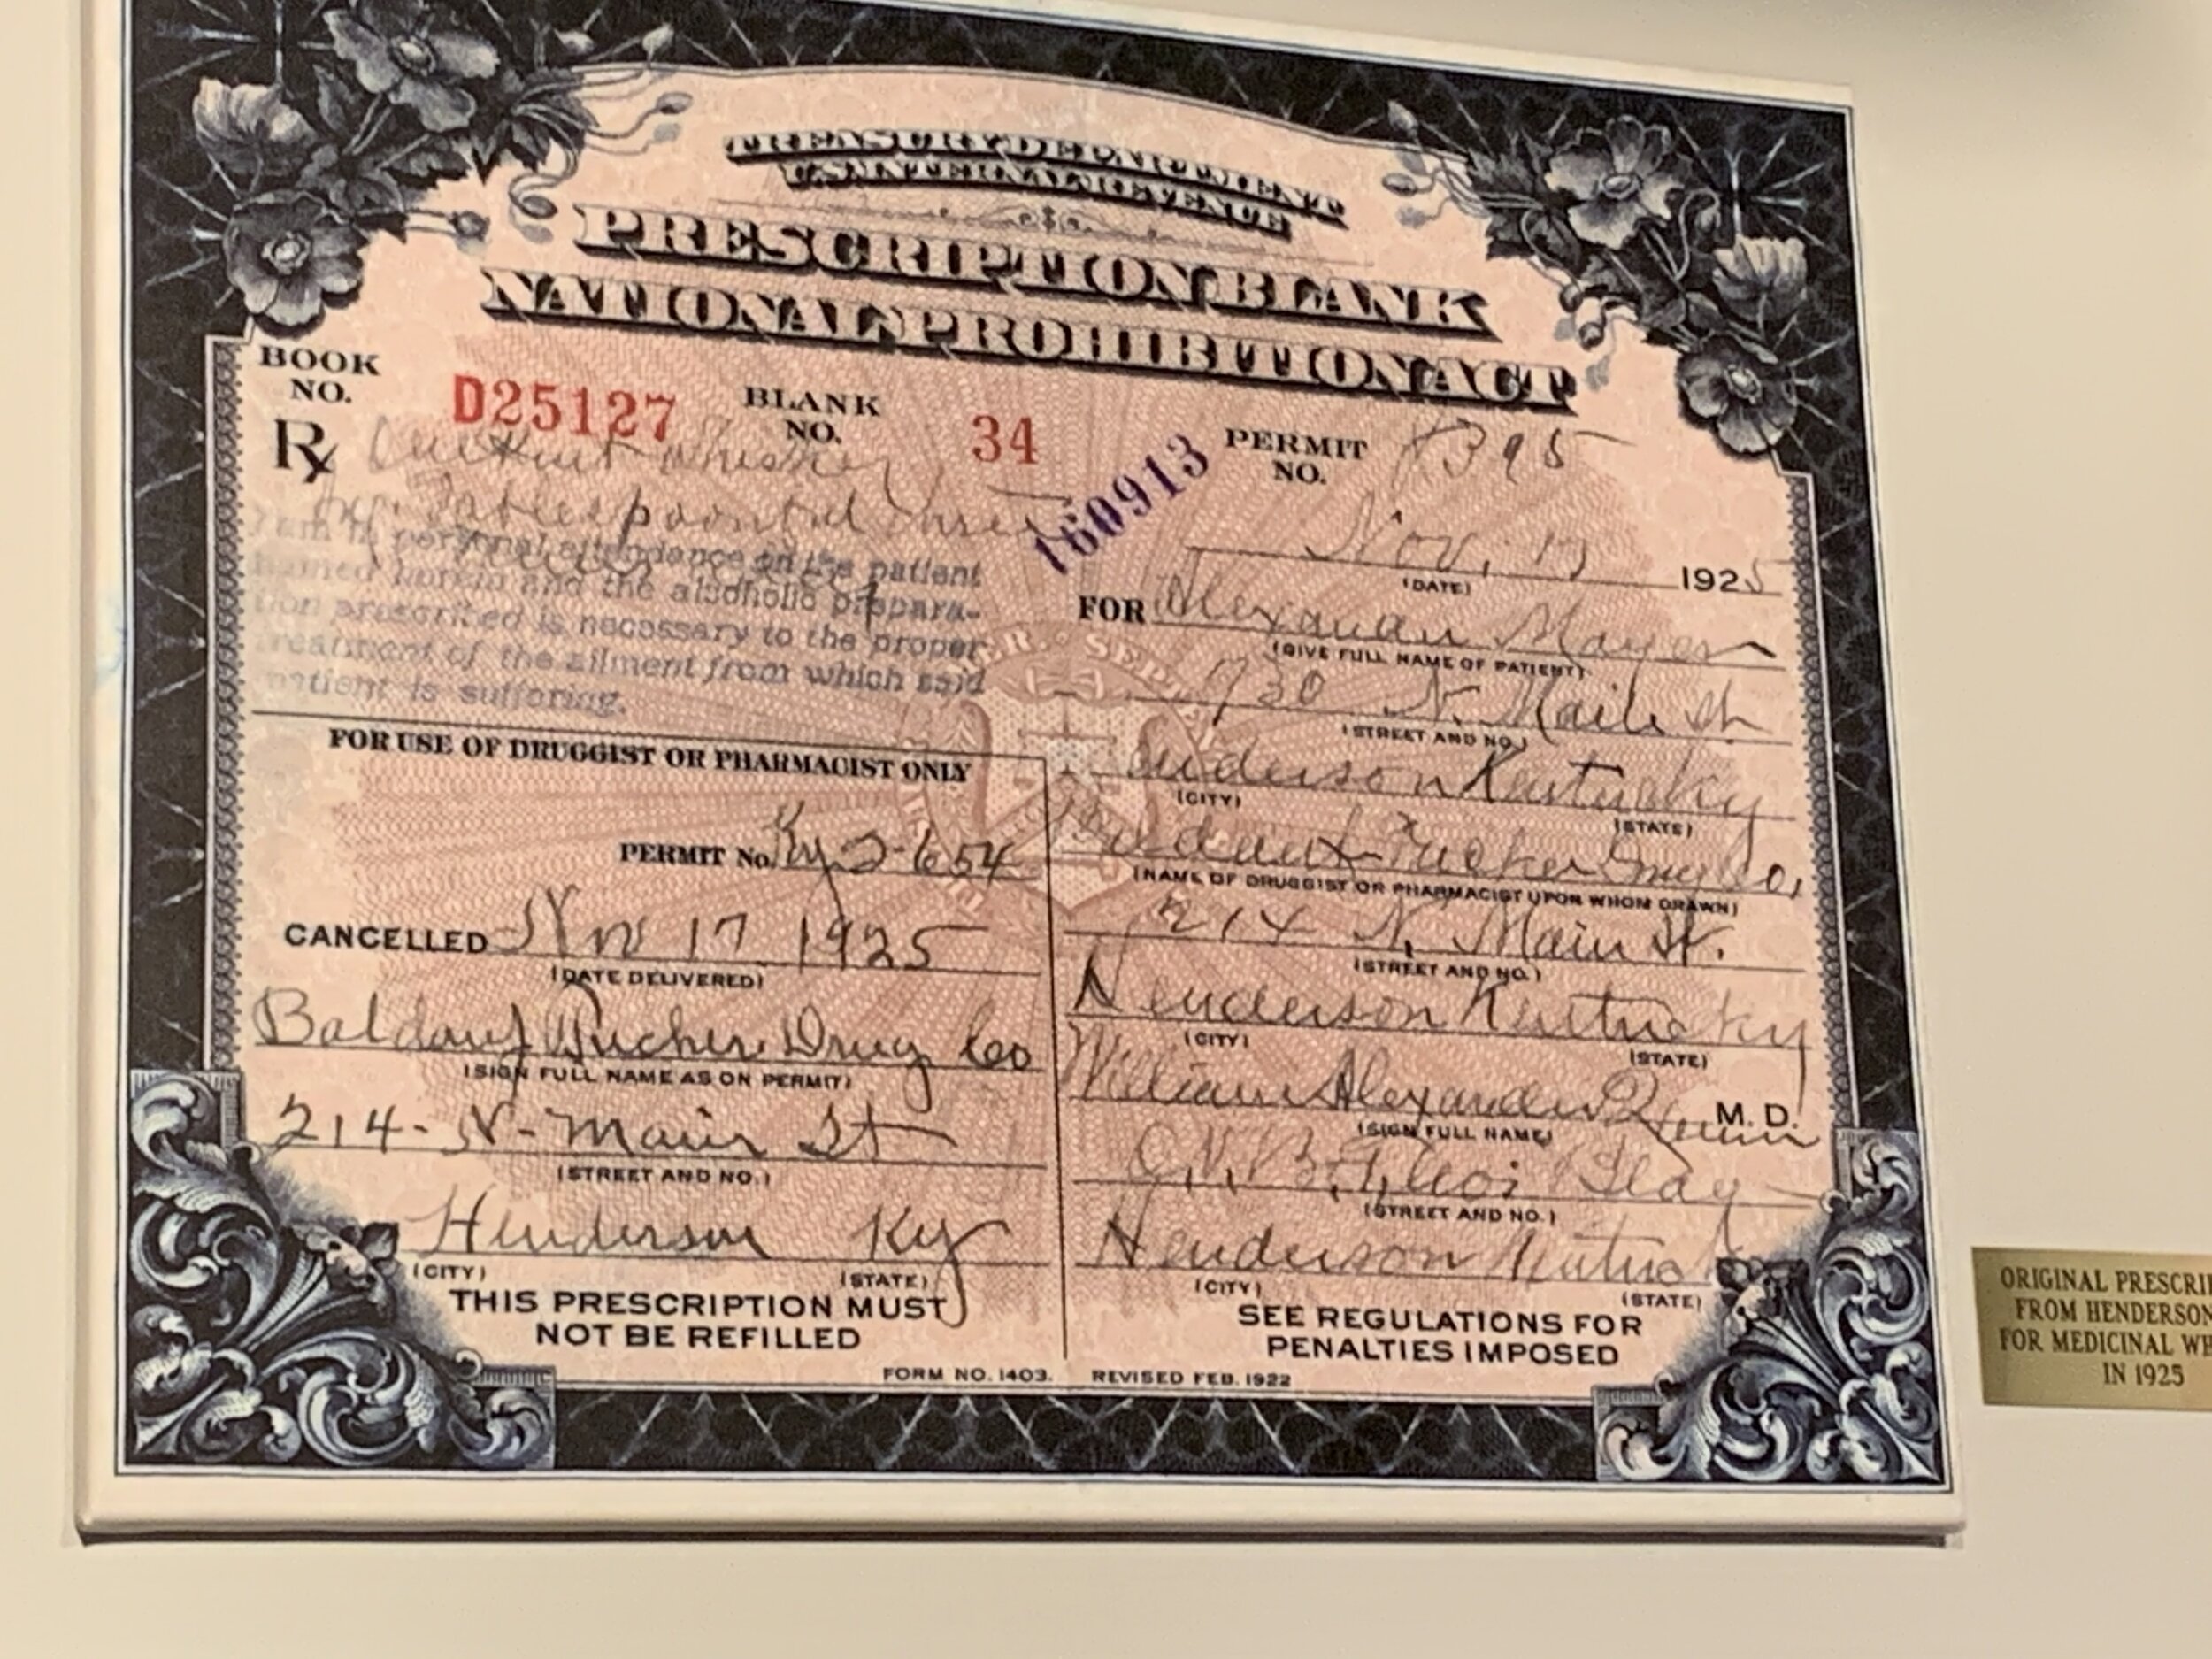 TREASURY DEPARTMENT
U.S. INTERNAL REVENUE
PRESCRIPTION BLANK
NATIONAL PROHIBITION ACT
BOOK NO. D25127 BLANK NO. 34 PERMIT NO.
160913
Rx Whiskey
Tablespoonful three
I am in personal attendance on the patient
named herein and the alcoholic prepara-
tion prescribed is necessary to the proper
treatment of the ailment from which said
patient is suffering.
Nov. 17 1925
(DATE)
FOR Alexander Mayer
(GIVE FULL NAME OF PATIENT)
730 N. Main St
(STREET AND NO.)
Henderson Kentucky
(CITY) (STATE)
Tucker Drug Co,
(NAME OF DRUGGIST OR PHARMACIST UPON WHOM DRAWN)
214 N. Main St.
(STREET AND NO.)
Henderson Kentucky
(CITY) (STATE)
William Alexander M. D.
(SIGN FULL NAME)
(STREET AND NO.)
Henderson Kentucky
(CITY) (STATE)
SEE REGULATIONS FOR
PENALTIES IMPOSED
FOR USE OF DRUGGIST OR PHARMACIST ONLY
PERMIT No. Ky 2-654
CANCELLED Nov 17 1925
(DATE DELIVERED)
Baldauf Tucker Drug Co
(SIGN FULL NAME AS ON PERMIT)
214- N- Main St
(STREET AND NO.)
Henderson Ky
(CITY) (STATE)
THIS PRESCRIPTION MUST
NOT BE REFILLED
FORM NO. 1403. REVISED FEB. 1922
ORIGINAL
FROM HENDERSON
FOR MEDICINAL
IN 1925